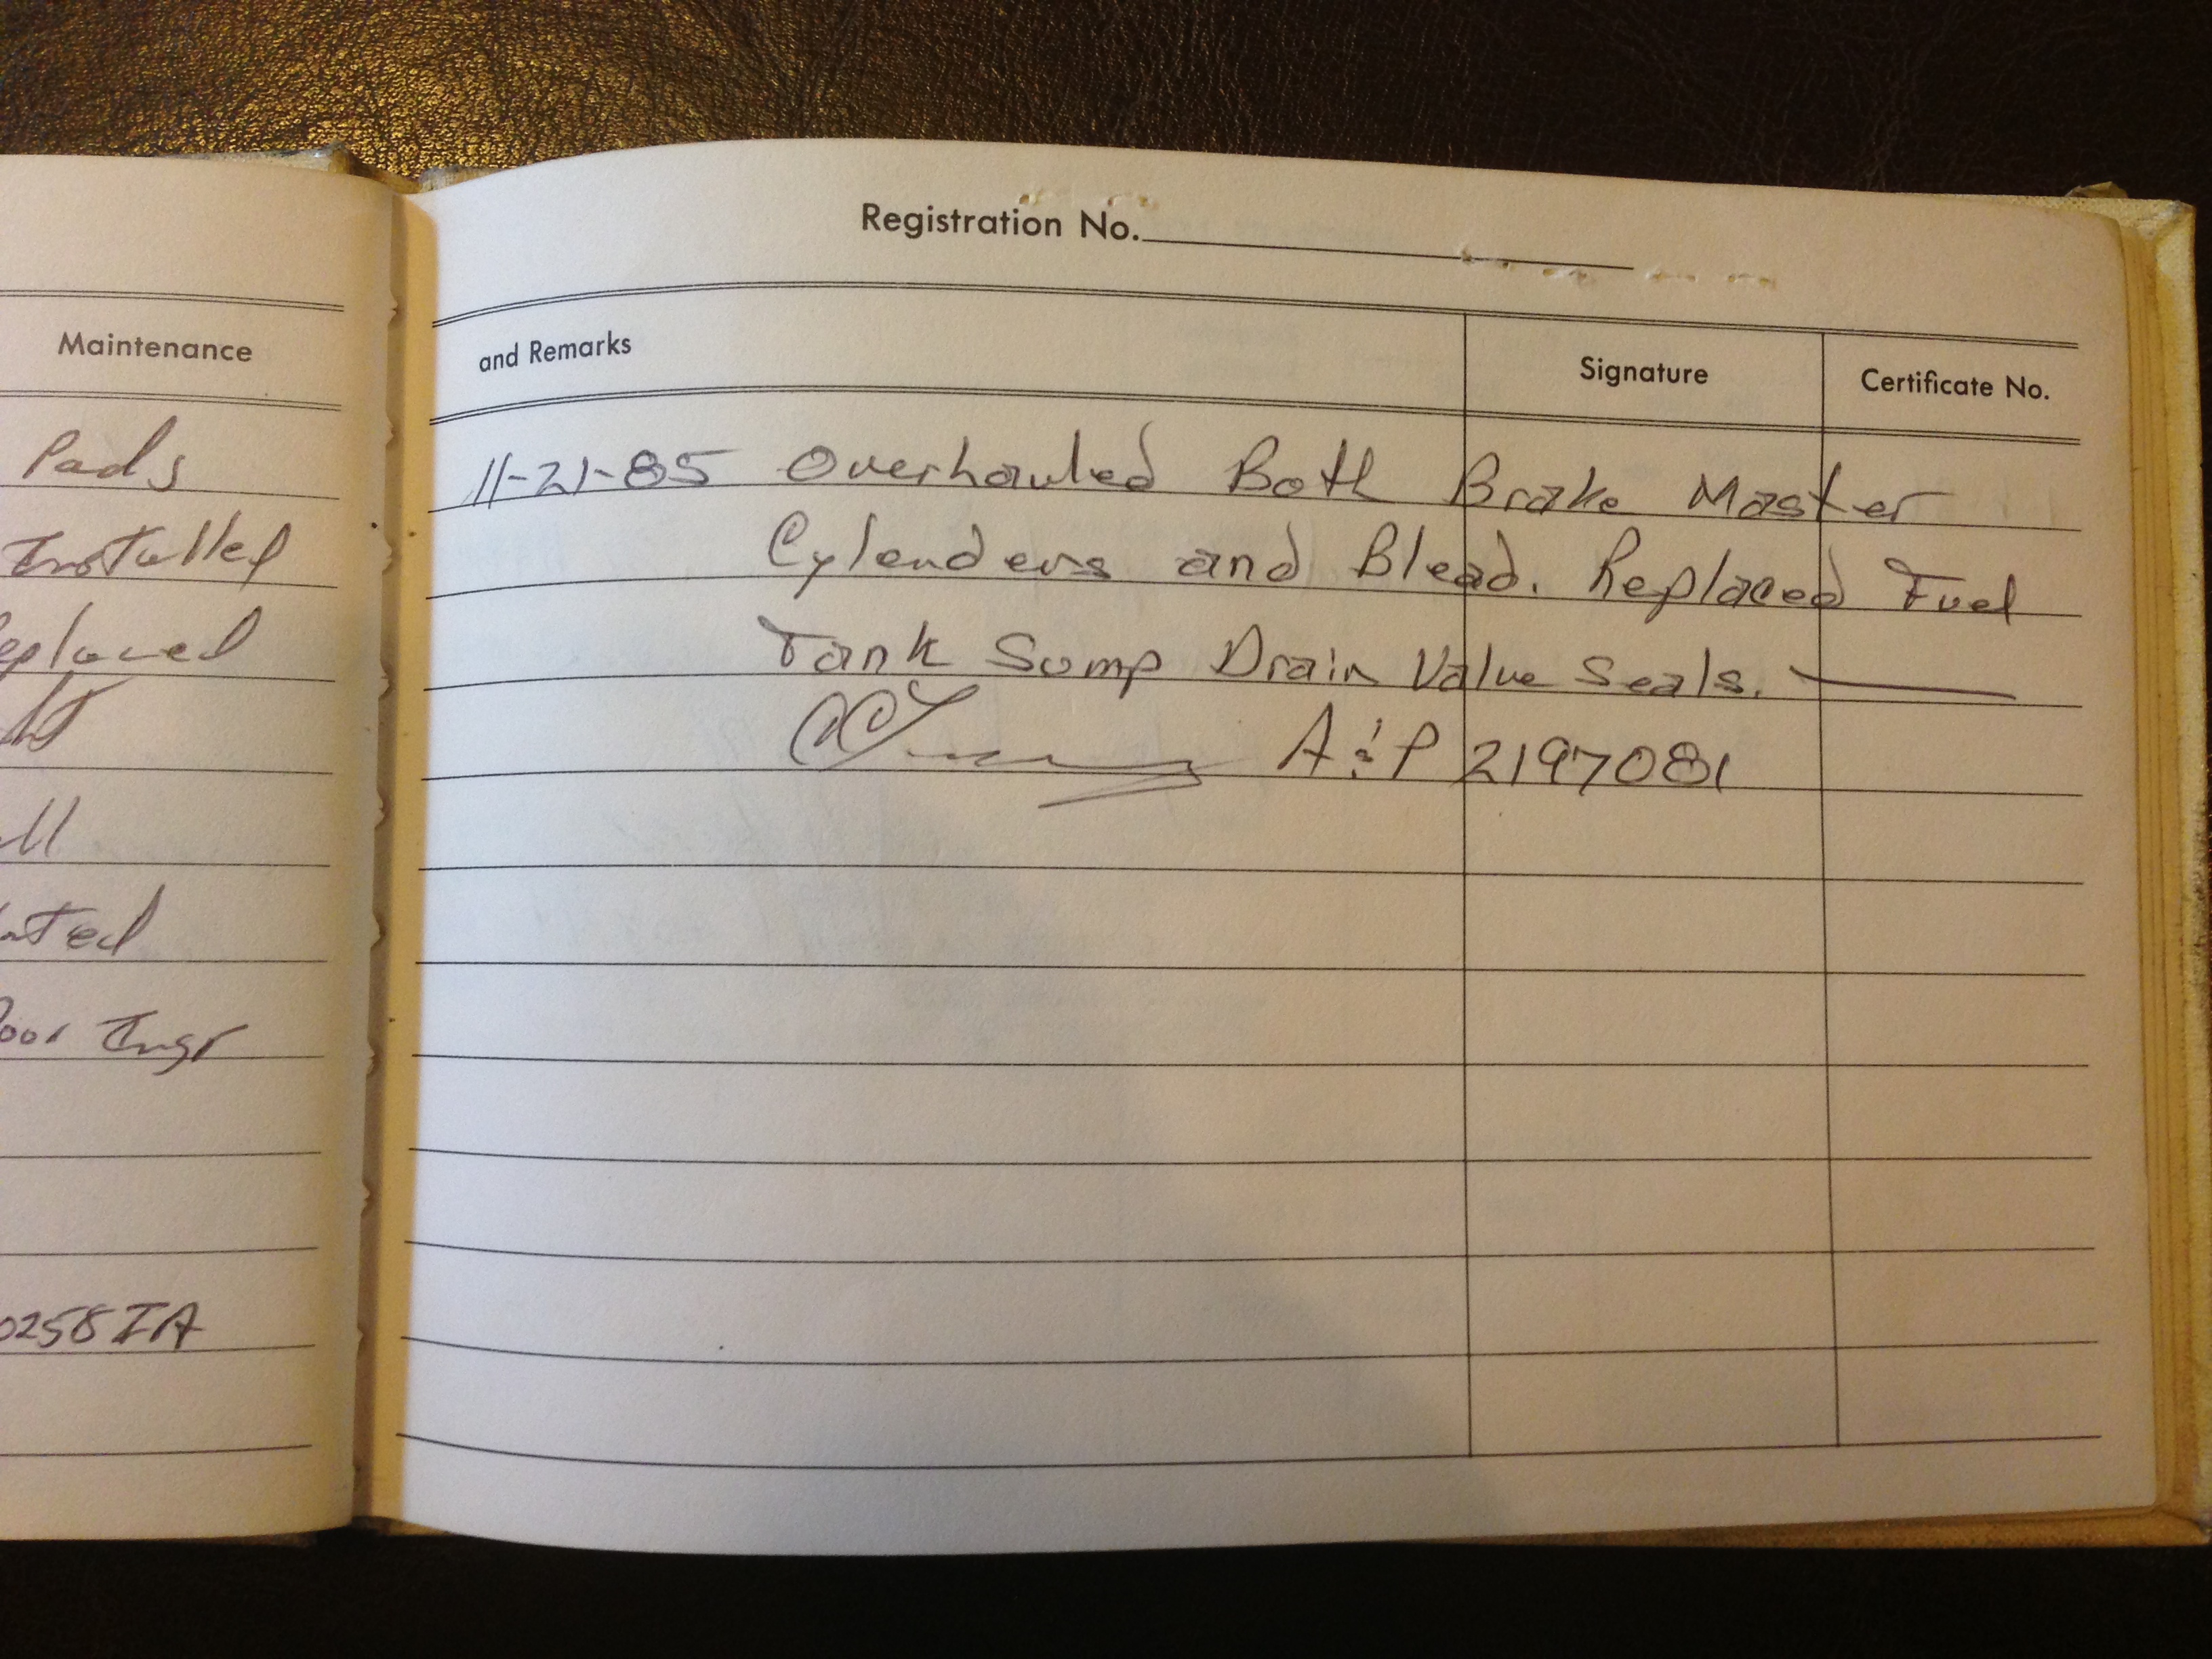 Maintenance
Pads
Installed
eplaced
ll
ated
oor Insp
0258 IA
Registration No.
and Remarks Signature Certificate No.
11-21-85 Overhauled Both Brake Master
Cylenders and Blead. Replaced Fuel
Tank Sump Drain Valve Seals.
A & P 2197081